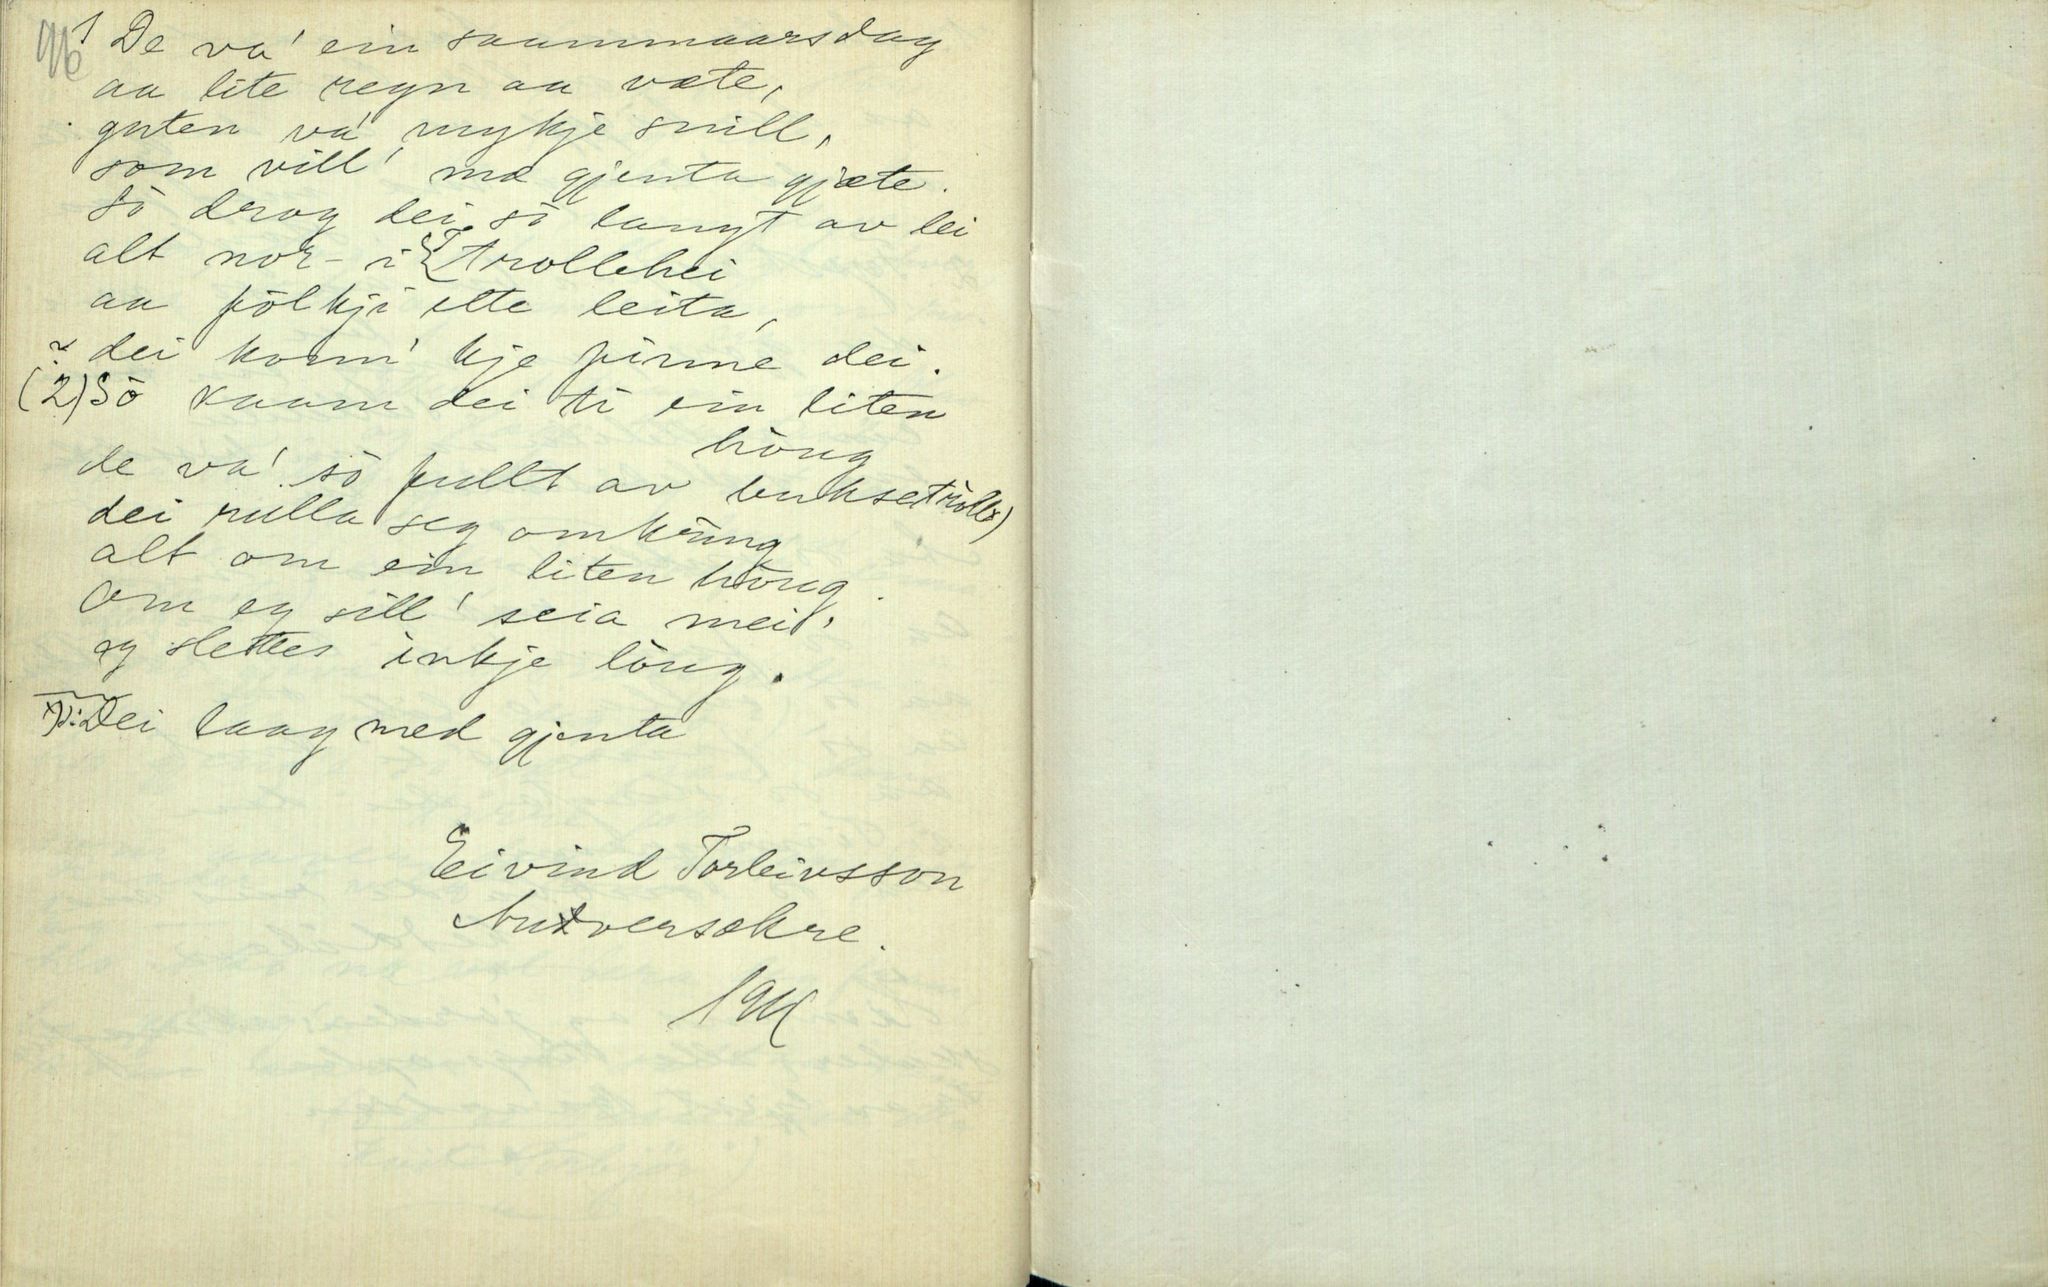 96
1 De va' ein saummaarsdag
aa lite regn aa væte,
guten va' mykje snill,
som vill' mæ gjenta gjæte.
Sò drog dei sò langt av lei
alt nor- i Trollehei
aa fòlkji ette leita,
dei kom' kje finne dei.
(2) Sò kaam dei ti ein liten
hòug
de va' sò fullt av buksetròll x)
dei rulla seg omkring
alt om ein liten hòug.
Om eg sill' seia mei,
eg slettes inkje lòug.
x) Dei laag med gjenta
Eivind Torleivsson